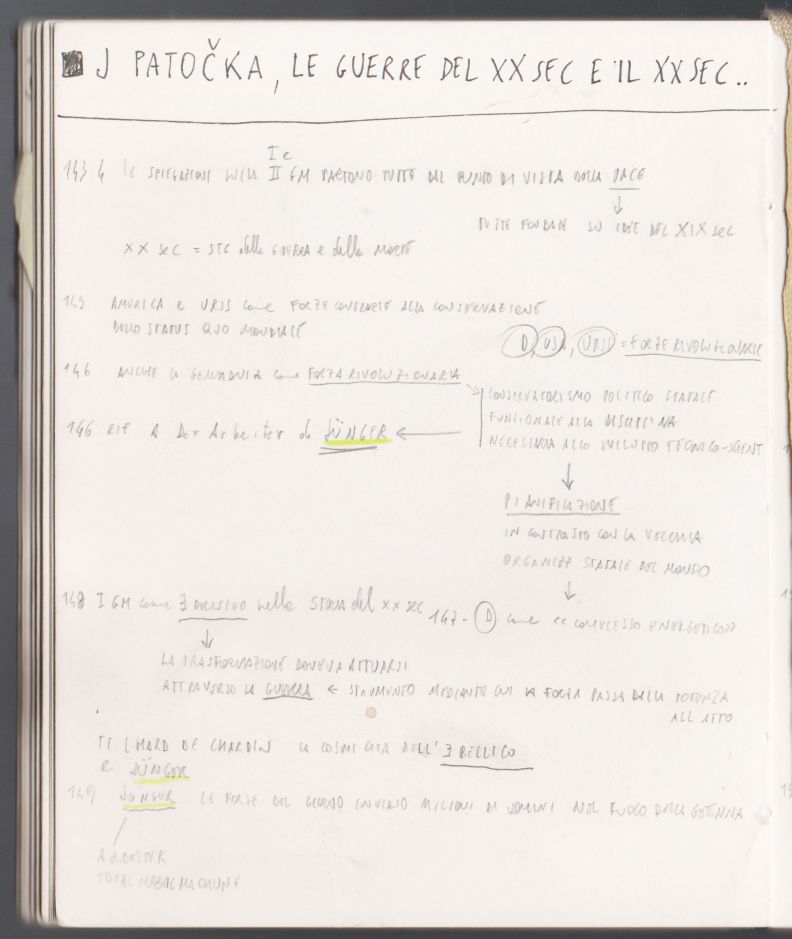 J PATOČKA, LE GUERRE DEL XX SEC E IL XX SEC..
I e
143 4 le SPIEGAZIONI SULLA II GM PARTONO TUTTE DAL PUNTO DI VISTA DELLA PACE
↓
TUTTE FONDATE SU IDEE DEL XIX SEC
XX SEC = SEC della GUERRA e della MORTE
145 AMERICA e URSS come FORZE CONTRARIE ALLA CONSERVAZIONE
DELLO STATUS QUO MONDIALE
D, USA, URSS = FORZE RIVOLUZIONARIE
146 ANCHE la GERMANIA come FORZA RIVOLUZIONARIA
CONSERVATORISMO POLITICO STATALE
FUNZIONALE ALLA DISCIPLINA
146 RIF A Der Arbeiter di JÜNGER ←
NECESSARIA ALLO SVILUPPO TECNICO-SCIENT
↓
PIANIFICAZIONE
IN CONTRASTO CON LA VECCHIA
ORGANIZZ STATALE DEL MONDO
↓
148 I GM come ∃ DECISIVO nella STORIA del XX SEC
147- D come << COMPLESSO ENERGETICO >>
↓
LA TRASFORMAZIONE DOVEVA ATTUARSI
ATTRAVERSO LA GUERRA ← STRUMENTO MEDIANTE CUI LA FORZA PASSA DALLA POTENZA
ALL ATTO
TEILHARD DE CHARDIN LA COSMICITÀ DELL'∃ BELLICO
e JÜNGER
149 JÜNGER LE FORZE DEL GIORNO INVIANO MILIONI DI UOMINI NEL FUOCO DELLA GEENNA
ARBEITER
TOTAL MOBILMACHUNG